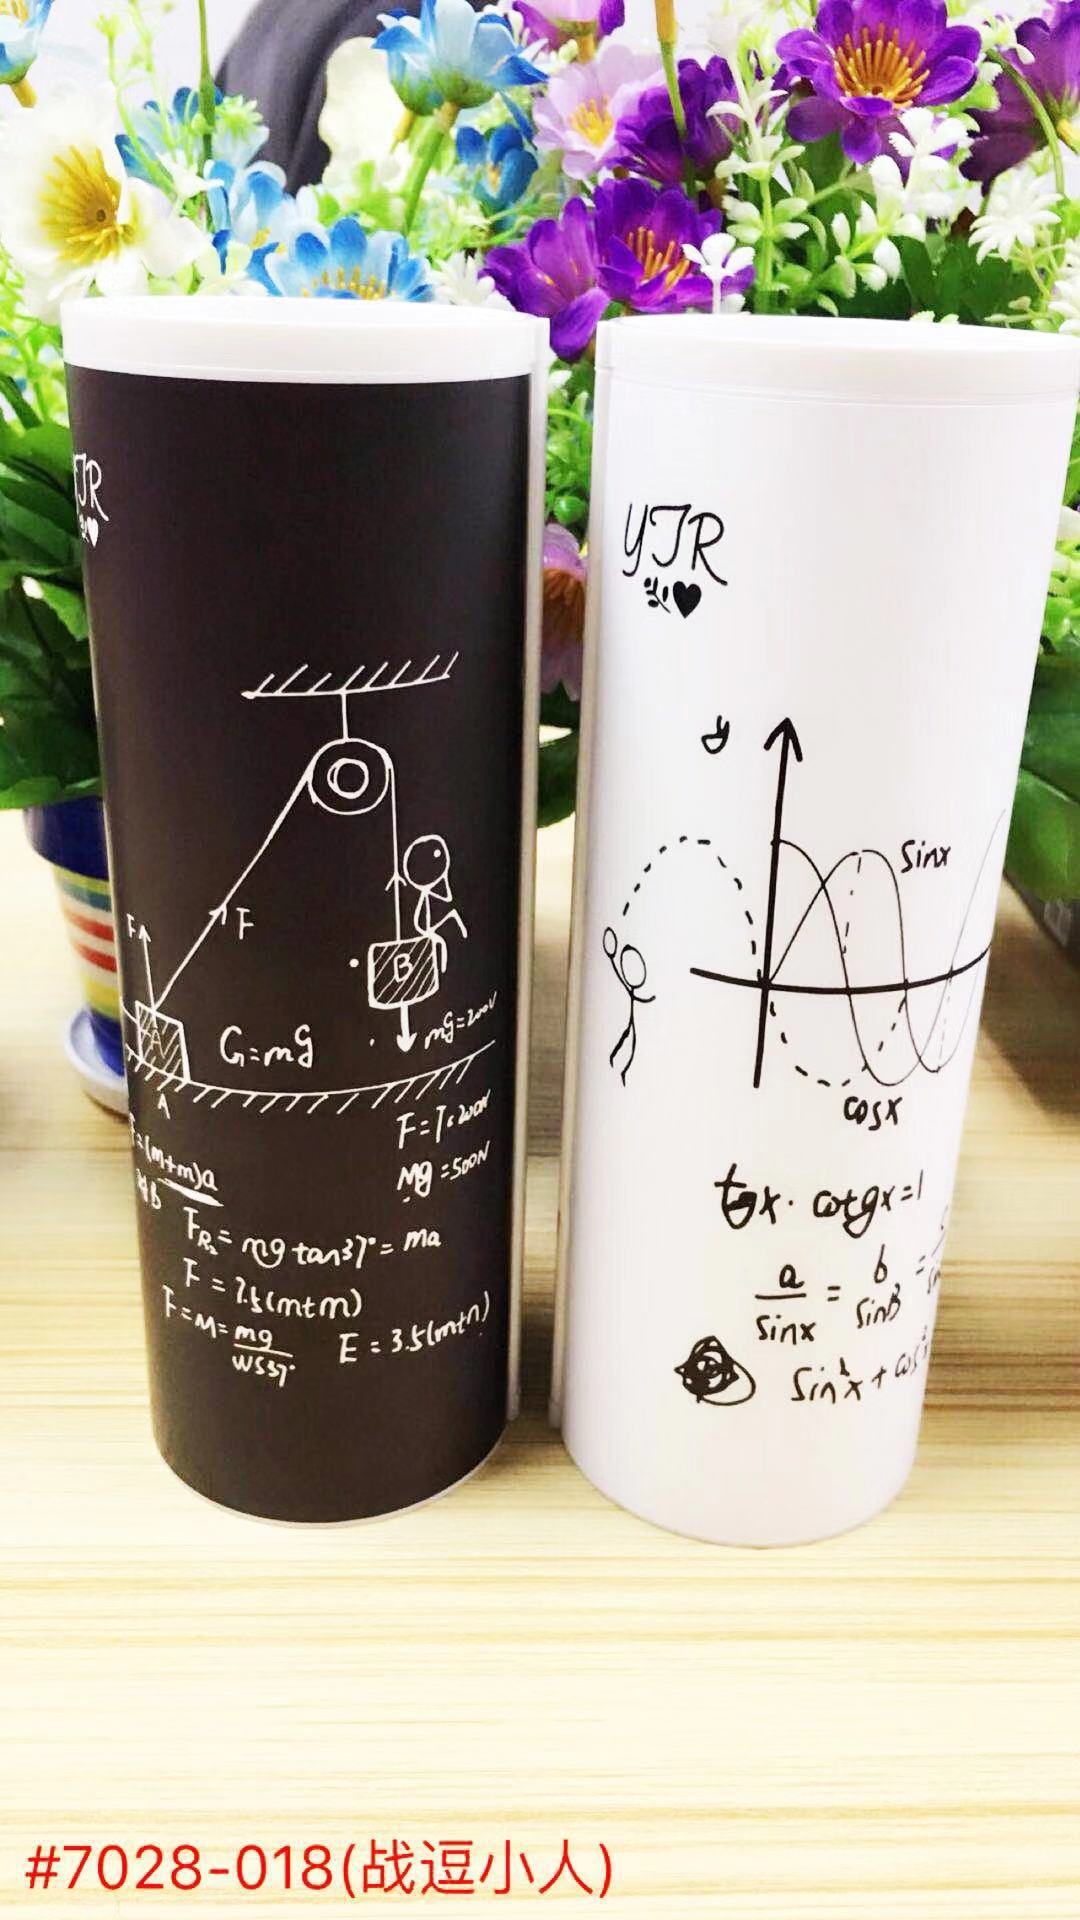 YJR
F
F
B
A
G=mg
mg=200N
A
F=T=200N
Mg=500N
=(m+m)a
FR2= mg tan37°= ma
F = 7.5(m+m)
F=M=mg
E = 3.5(m+m)
YJR
y
sinx
cosx
tgx. cotgx=1
a/sinx = b/sinB =
sin²x + cos²
#7028-018(战逗小人)